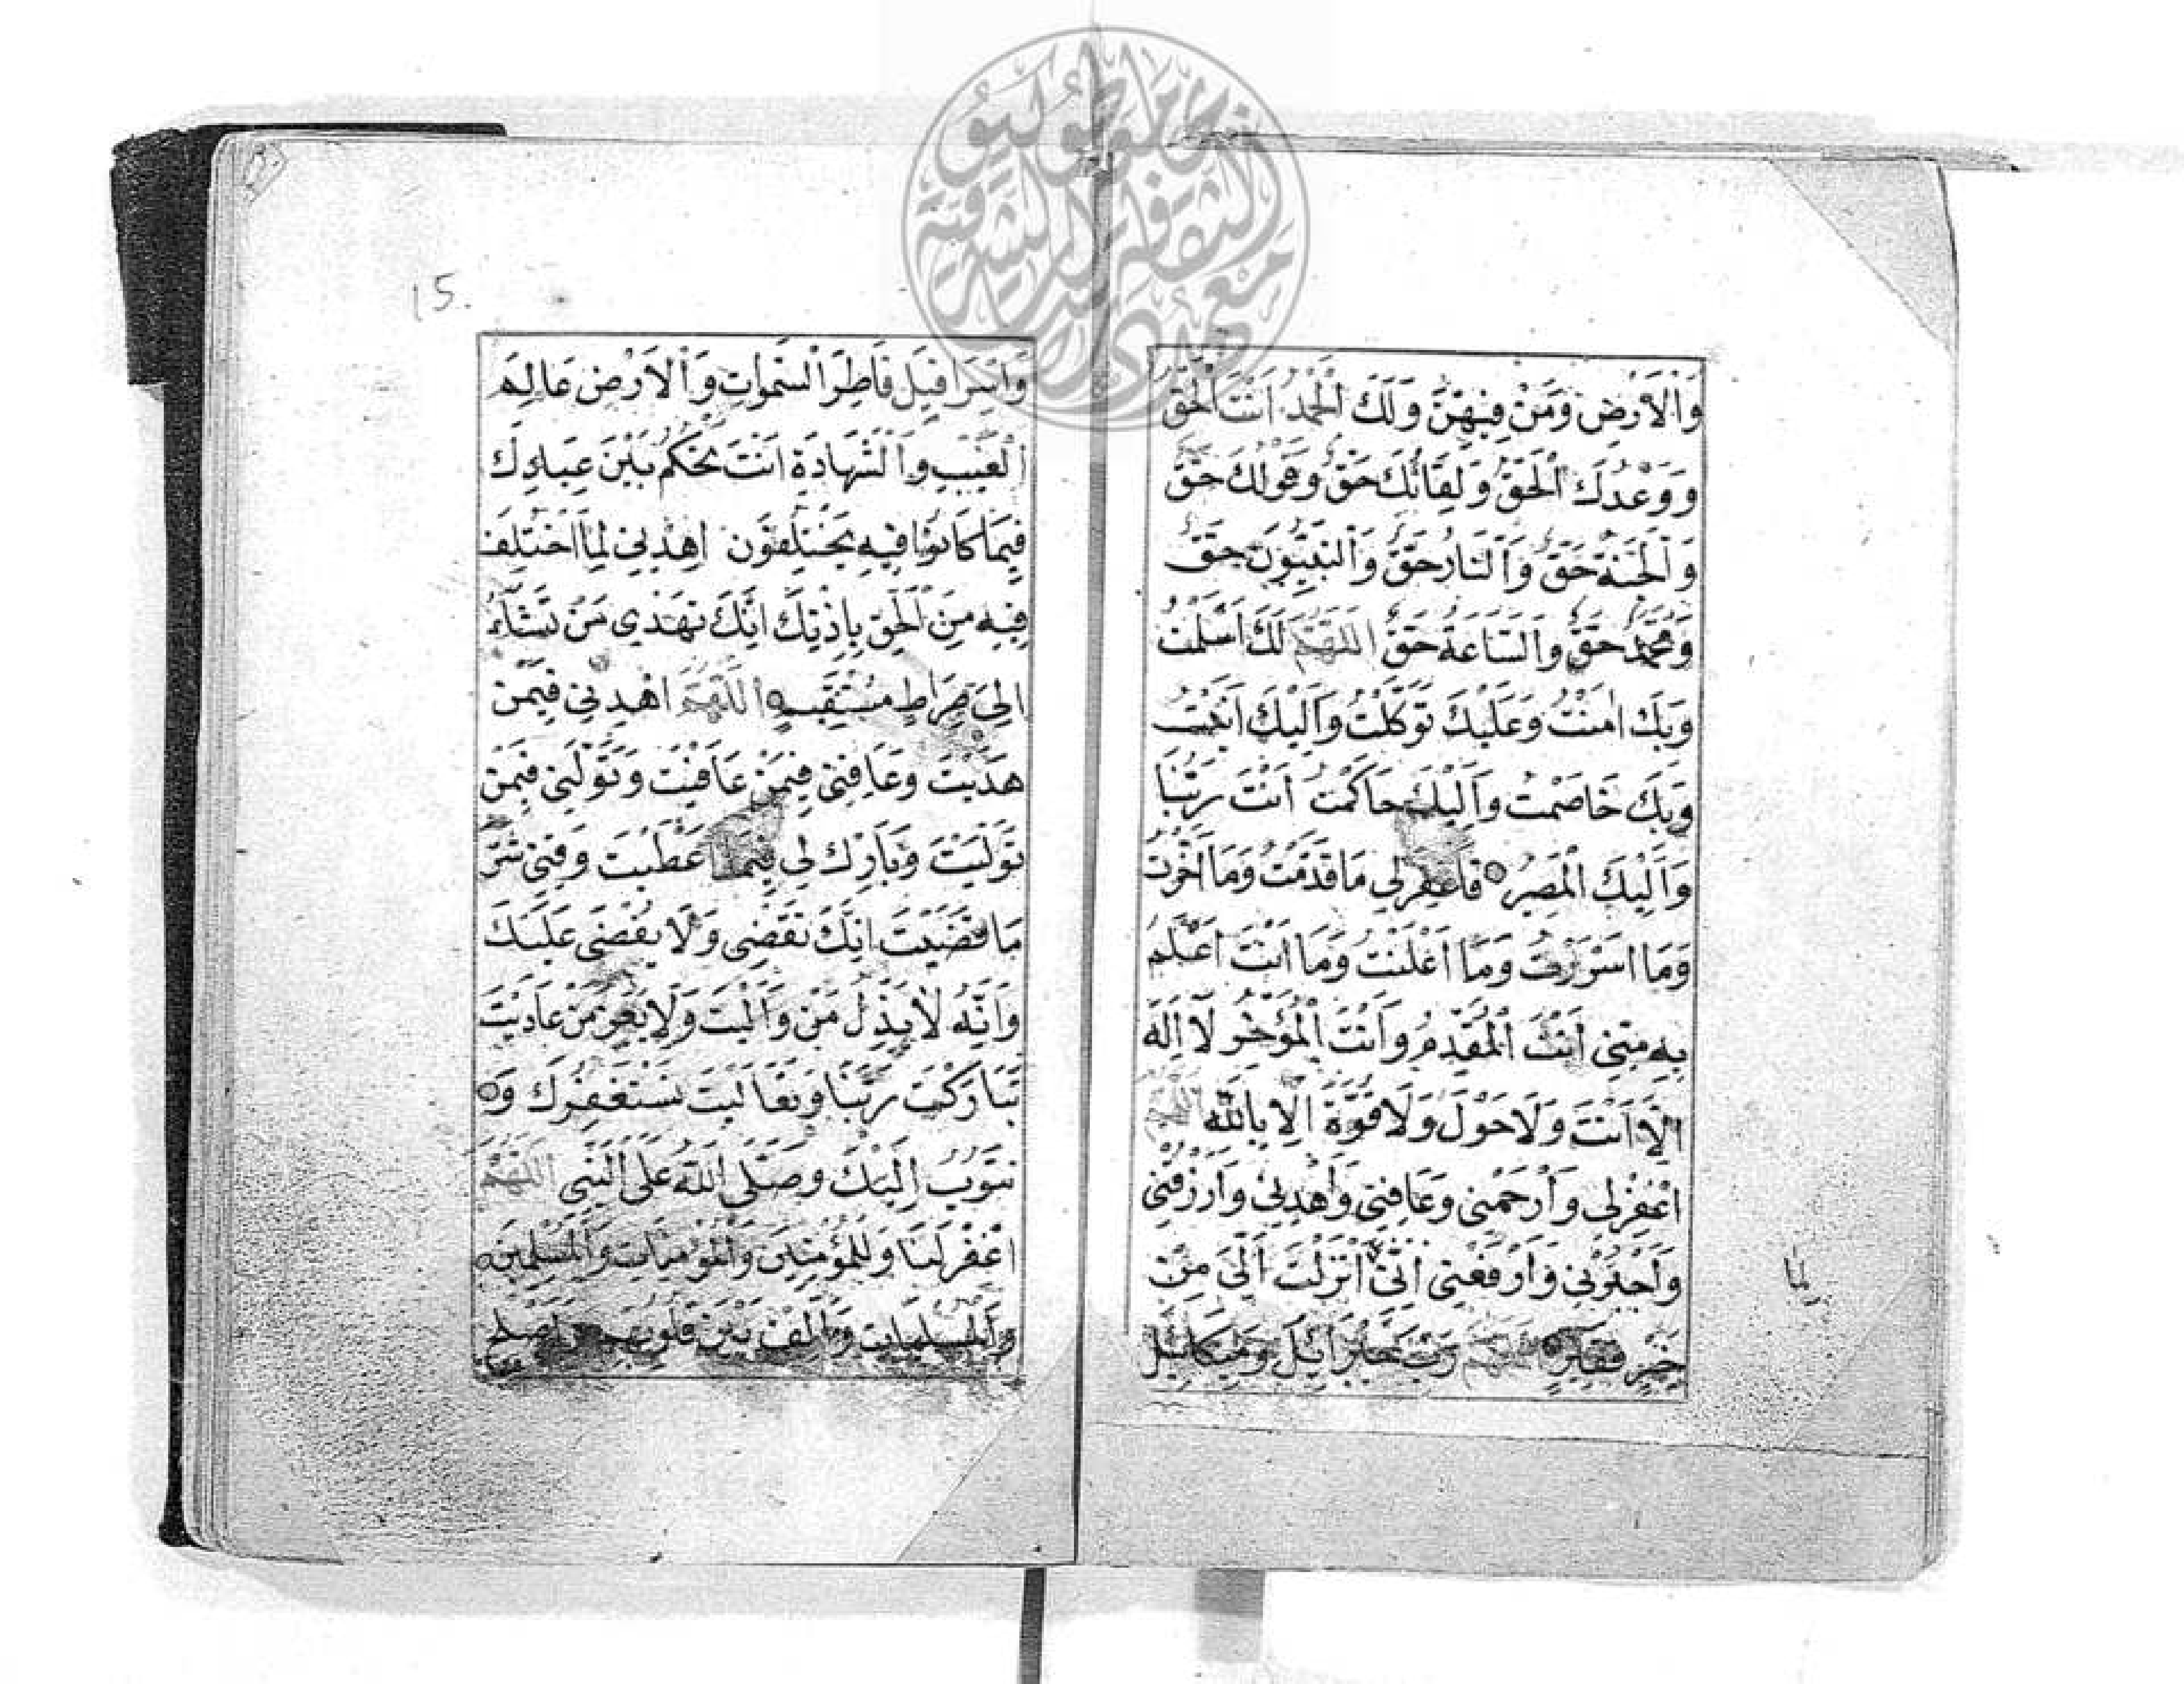 وَالْاَرْضِ وَمَنْ فِيهِنَّ وَلَكَ الْحَمْدُ اَنْتَ الْحَقُّ
وَوَعْدُكَ الْحَقُّ وَلِقَائُكَ حَقٌّ وَقَوْلُكَ حَقٌّ
وَالْجَنَّةُ حَقٌّ وَالنَّارُ حَقٌّ وَالنَّبِيُّونَ حَقٌّ
وَمُحَمَّدٌ حَقٌّ وَالسَّاعَةُ حَقٌّ اَللّٰهُمَّ لَكَ اَسْلَمْتُ
وَبِكَ اٰمَنْتُ وَعَلَيْكَ تَوَكَّلْتُ وَاِلَيْكَ اَنَبْتُ
وَبِكَ خَاصَمْتُ وَاِلَيْكَ حَاكَمْتُ اَنْتَ رَبُّنَا
وَاِلَيْكَ الْمَصِيرُ فَاغْفِرْلِي مَا قَدَّمْتُ وَمَا اَخَّرْتُ
وَمَا اَسْرَرْتُ وَمَا اَعْلَنْتُ وَمَا اَنْتَ اَعْلَمُ
بِهِ مِنِّي اَنْتَ الْمُقَدِّمُ وَاَنْتَ الْمُؤَخِّرُ لَا اِلٰهَ
اِلَّا اَنْتَ وَلَا حَوْلَ وَلَا قُوَّةَ اِلَّا بِاللّٰهِ اَللّٰهُمَّ
اغْفِرْلِي وَارْحَمْنِي وَعَافِنِي وَاهْدِنِي وَارْزُقْنِي
وَاجْبُرْنِي وَارْفَعْنِي اِنِّي لِمَا اَنْزَلْتَ اِلَيَّ مِنْ
لِمَا
خَيْرٍ فَقِيرٌ اَللّٰهُمَّ رَبَّ جَبْرَائِيلَ وَمِيكَائِيلَ
15.
وَاِسْرَافِيلَ فَاطِرَ السَّمٰوَاتِ وَالْاَرْضِ عَالِمَ
الْغَيْبِ وَالشَّهَادَةِ اَنْتَ تَحْكُمُ بَيْنَ عِبَادِكَ
فِيمَا كَانُوا فِيهِ يَخْتَلِفُونَ اِهْدِنِي لِمَا اخْتُلِفَ
فِيهِ مِنَ الْحَقِّ بِاِذْنِكَ اِنَّكَ تَهْدِي مَنْ تَشَاءُ
اِلَى صِرَاطٍ مُسْتَقِيمٍ اَللّٰهُمَّ اهْدِنِي فِيمَنْ
هَدَيْتَ وَعَافِنِي فِيمَنْ عَافَيْتَ وَتَوَلَّنِي فِيمَنْ
تَوَلَّيْتَ وَبَارِكْ لِي فِيمَا اَعْطَيْتَ وَقِنِي شَرَّ
مَا قَضَيْتَ اِنَّكَ تَقْضِي وَلَا يُقْضَى عَلَيْكَ
وَاِنَّهُ لَا يَذِلُّ مَنْ وَالَيْتَ وَلَا يَعِزُّ مَنْ عَادَيْتَ
تَبَارَكْتَ رَبَّنَا وَتَعَالَيْتَ نَسْتَغْفِرُكَ وَ
نَتُوبُ اِلَيْكَ وَصَلَّى اللّٰهُ عَلَى النَّبِيِّ اَللّٰهُمَّ
اغْفِرْ لَنَا وَلِلْمُؤْمِنِينَ وَالْمُؤْمِنَاتِ وَالْمُسْلِمِينَ
وَالْمُسْلِمَاتِ وَاَلِّفْ بَيْنَ قُلُوبِهِمْ وَاَصْلِحْ